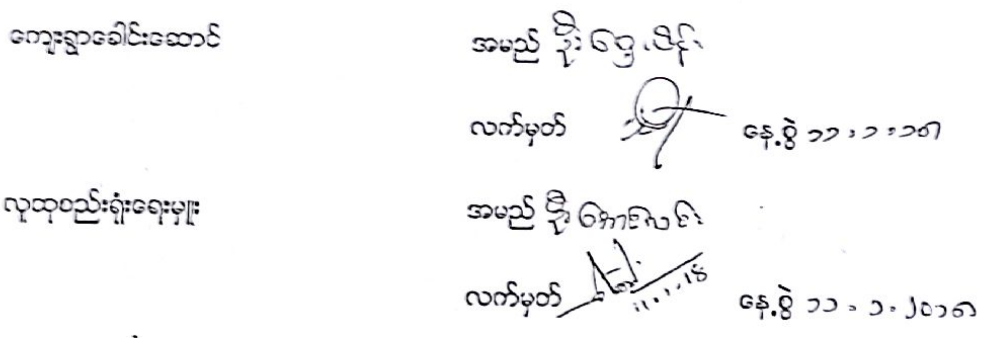 ကျေးရွာခေါင်းဆောင် အမည် ဦး ရွှေသိန်း
လက်မှတ် နေ့စွဲ ၁၁.၁.၁၈
လူထုစည်းရုံးရေးမှူး အမည် ဦးအောင်လင်း
လက်မှတ် 11.1.18 နေ့စွဲ ၁၁.၁.၂၀၁၈